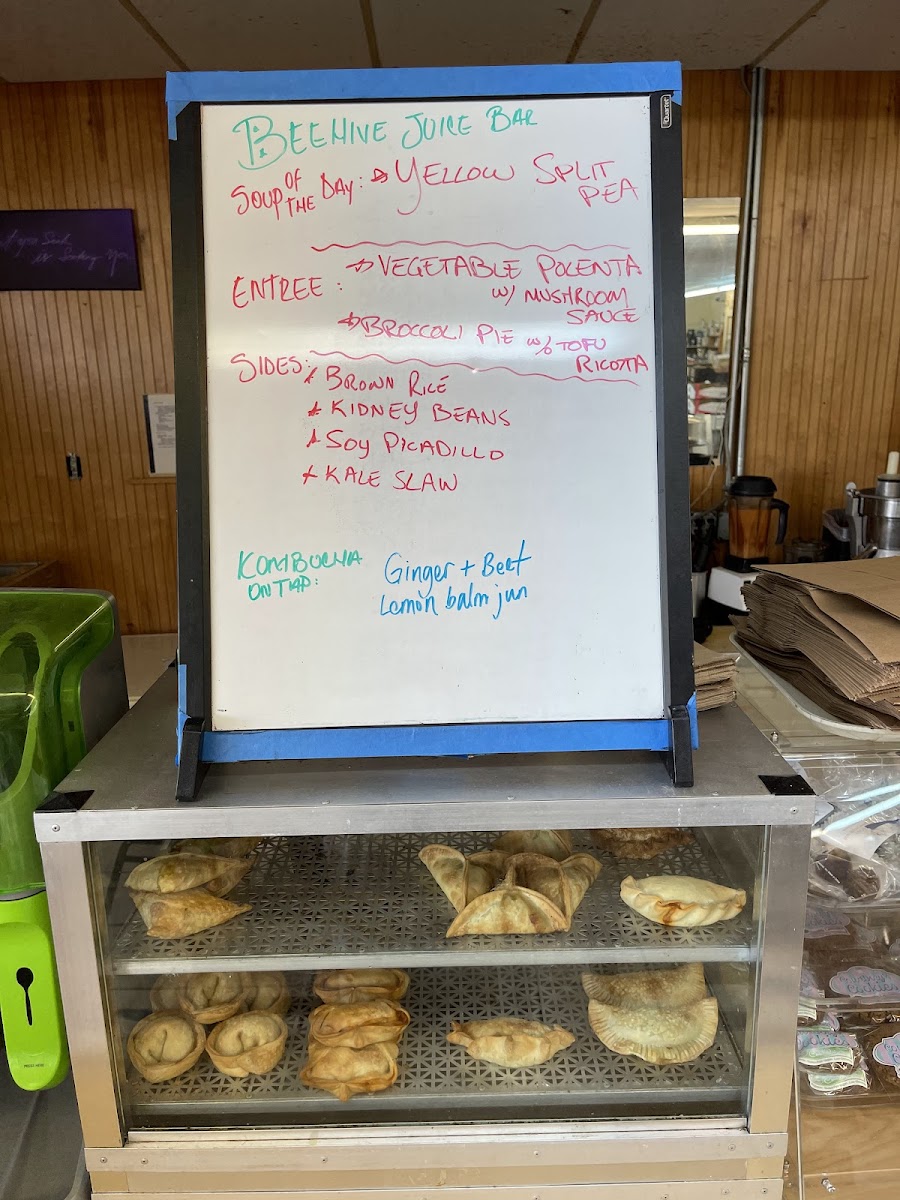 Quartet
BEEHIVE JUICE BAR
SOUP OF THE DAY: YELLOW SPLIT
PEA
ENTREE: VEGETABLE POLENTA
W/ MUSHROOM
SAUCE
BROCCOLI PIE W/ TOFU
RICOTTA
SIDES: BROWN RICE
KIDNEY BEANS
SOY PICADILLO
KALE SLAW
KOMBUCHA
ON TAP:
Ginger + Beet
Lemon balm jun